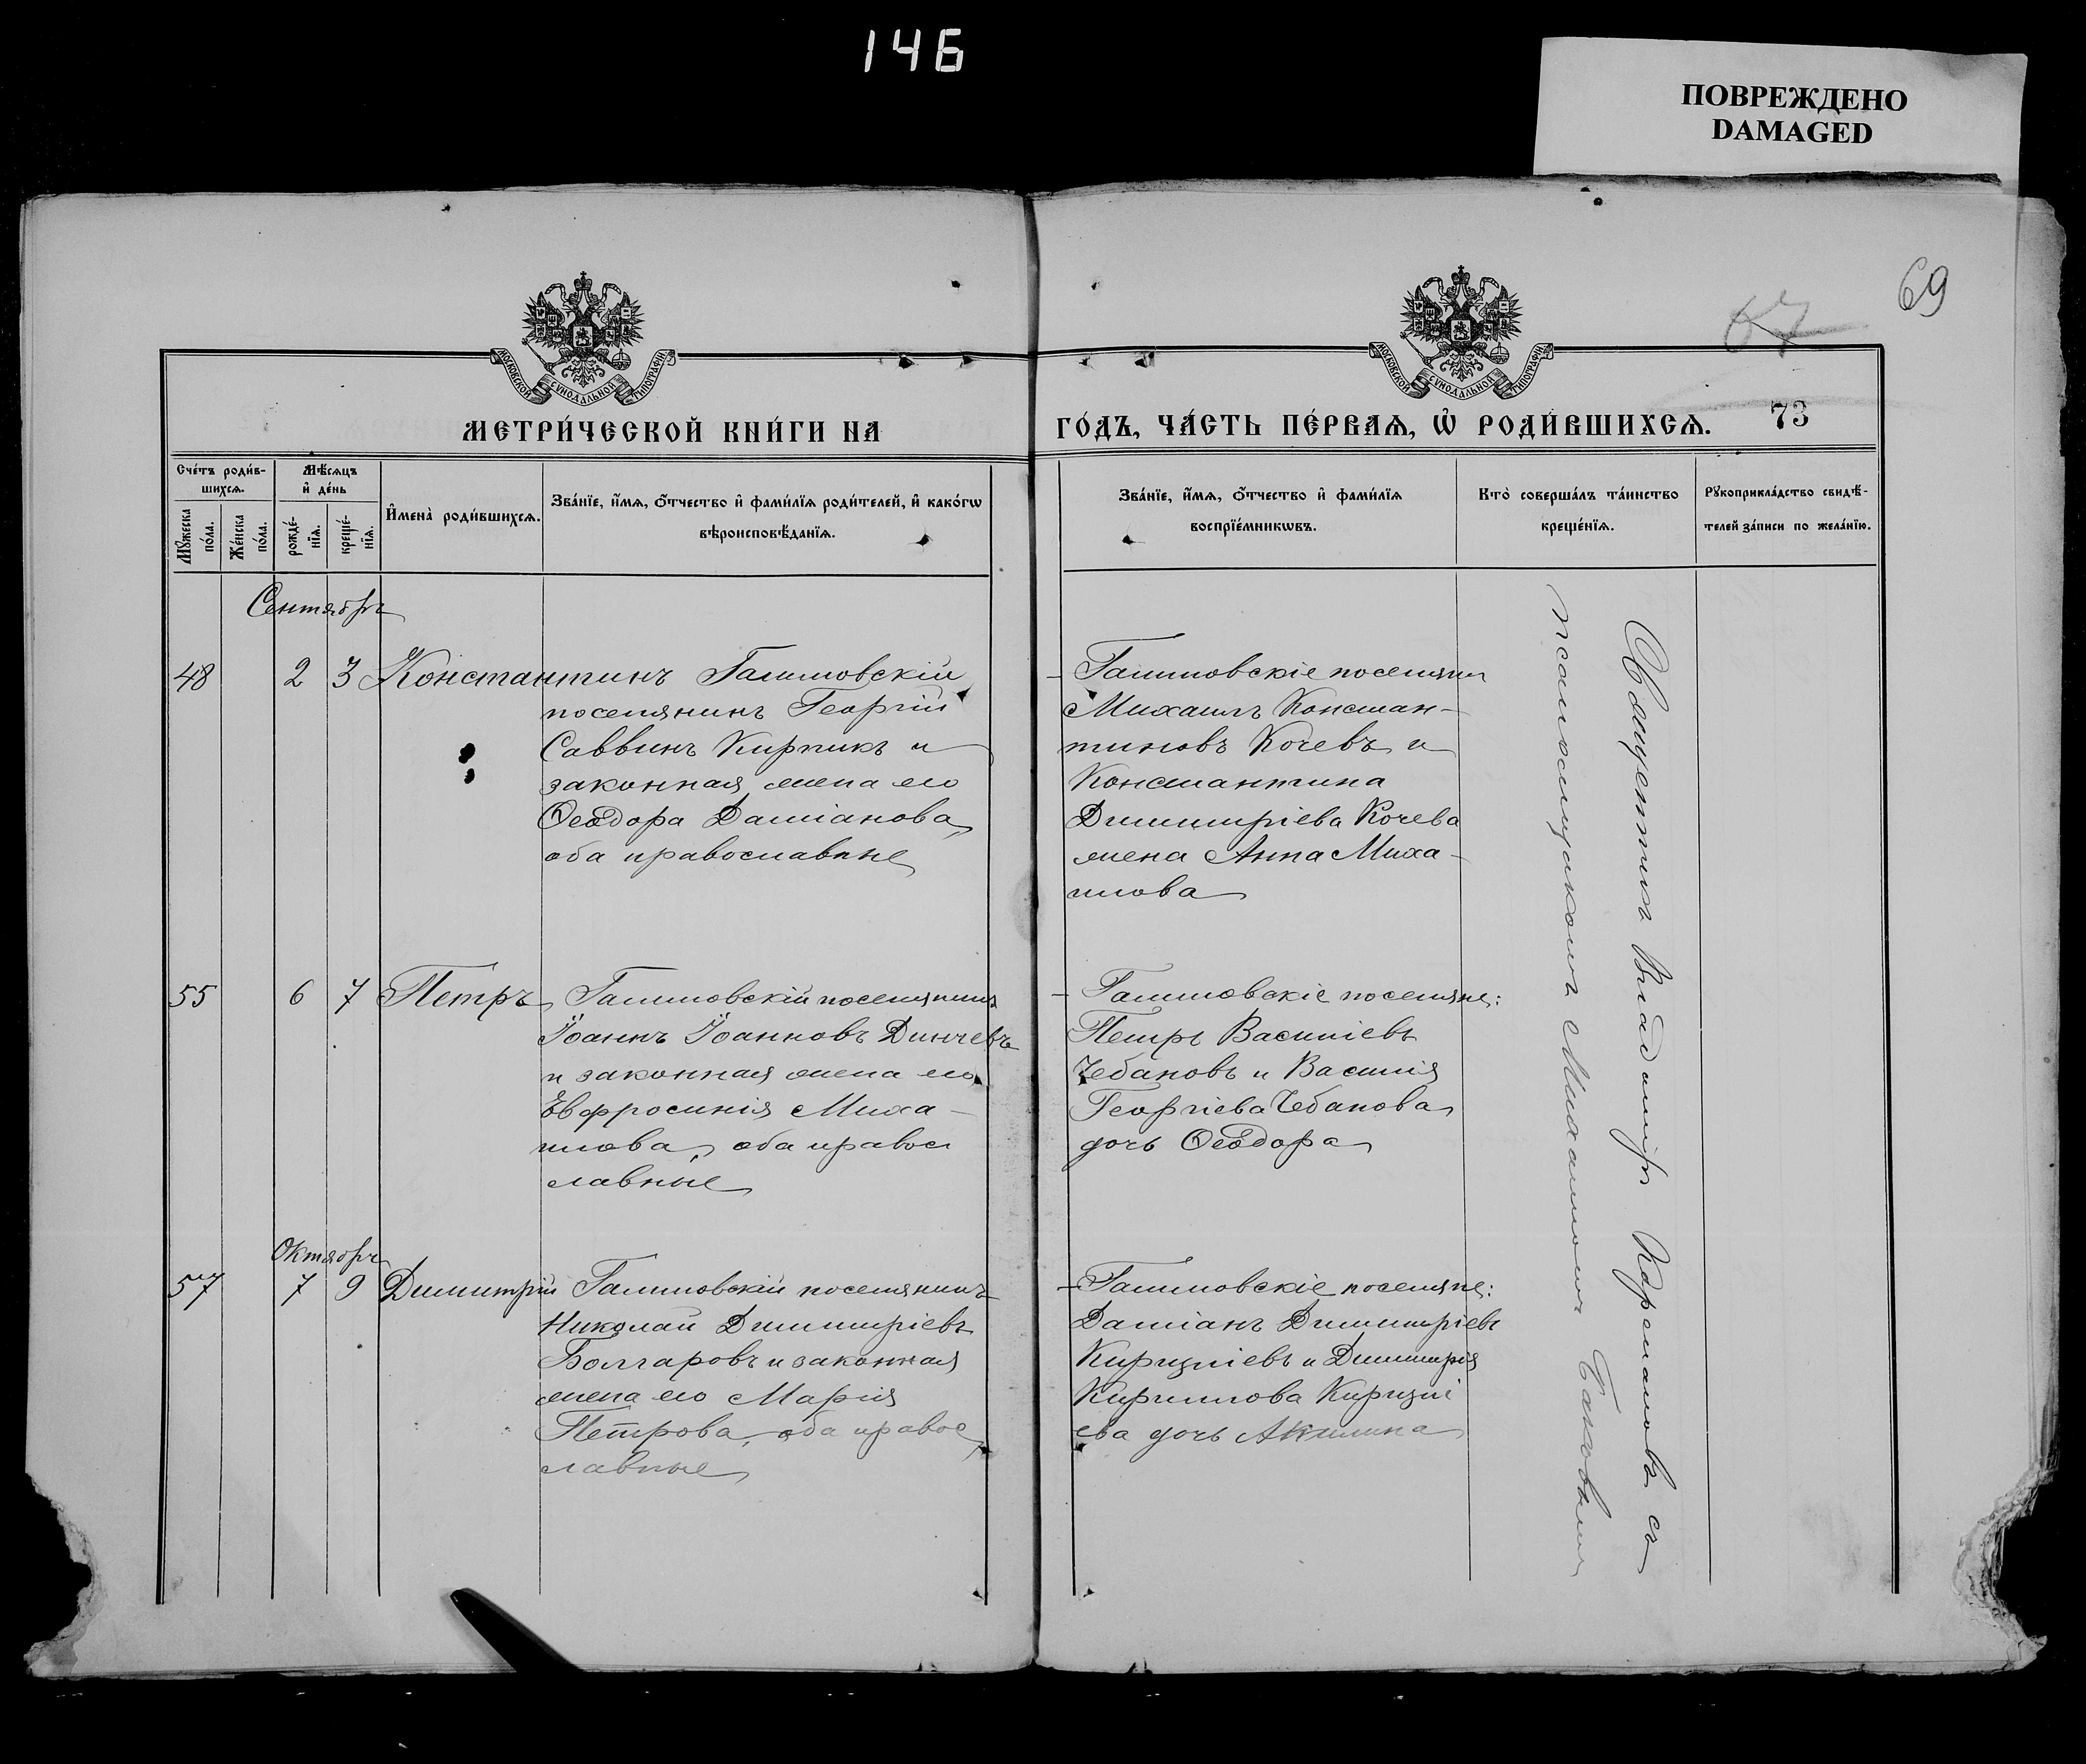 146
ПОВРЕЖДЕНО
DAMAGED
69
67
МОСКОВСКОЙ СѴНОДАЛЬНОЙ ТИПОГРАФІИ
МОСКОВСКОЙ СѴНОДАЛЬНОЙ ТИПОГРАФІИ
МЕТРИ́ЧЕСКОЙ КНИ́ГИ НА
ГО́ДЪ, ЧА́СТЬ ПЕ́РВАѦ, Ѽ РОДИ́ВШИХСѦ.
73
Сче́тъ роди́в-
шихсѧ.
Мѣ́сѧцъ
и҆ де́нь
Мꙋ́жеска
по́ла.
Же́нска
по́ла.
рожде́-
нїѧ.
креще́-
нїѧ.
И҆мена̀ роди́вшихсѧ.
Зва́нїе, и҆́мѧ, ѻ҆́тчество и҆ фами́лїѧ роди́телей, и҆ како́гѡ
вѣроисповѣ́данїѧ.
Зва́нїе, и҆́мѧ, ѻ҆́тчество и҆ фами́лїѧ
воспрїе́мникѡвъ.
Кто̀ соверша́лъ та́инство
креще́нїѧ.
Рꙋкоприкла́дство свидѣ́-
телей за́писи по жела́нїю.
Сентябрь
48 2 3 Константинъ Галиловскій
поселянинъ Георгій
Саввинъ Кирпикъ и
законная жена его
Ѳеодора Даміанова,
оба православные
Галиловскіе поселяне
Михаилъ Констан-
тиновъ Кочевъ и
Константина
Димитріева Кочева
жена Анна Миха-
илова
55 6 7 Петръ Галиловскій поселянинъ
Іоаннъ Іоанновъ Динчевъ
и законная жена его
Евфросинія Миха-
илова, оба правос
лавные
Галиловскіе поселяне:
Петръ Василіевъ
Чебановъ и Василія
Георгіева Чебанова
дочь Ѳеодора
Октябрь
57 7 9 Димитрій Галиловскій поселянинъ
Николай Димитріевъ
Болгаровъ и законная
жена его Марія
Петрова, оба правос
лавные
Галиловскіе поселяне:
Даміанъ Димитріевъ
и Димитрія
Кириллова
ева дочь Акилина
Священникъ Владиміръ съ
псаломщикомъ